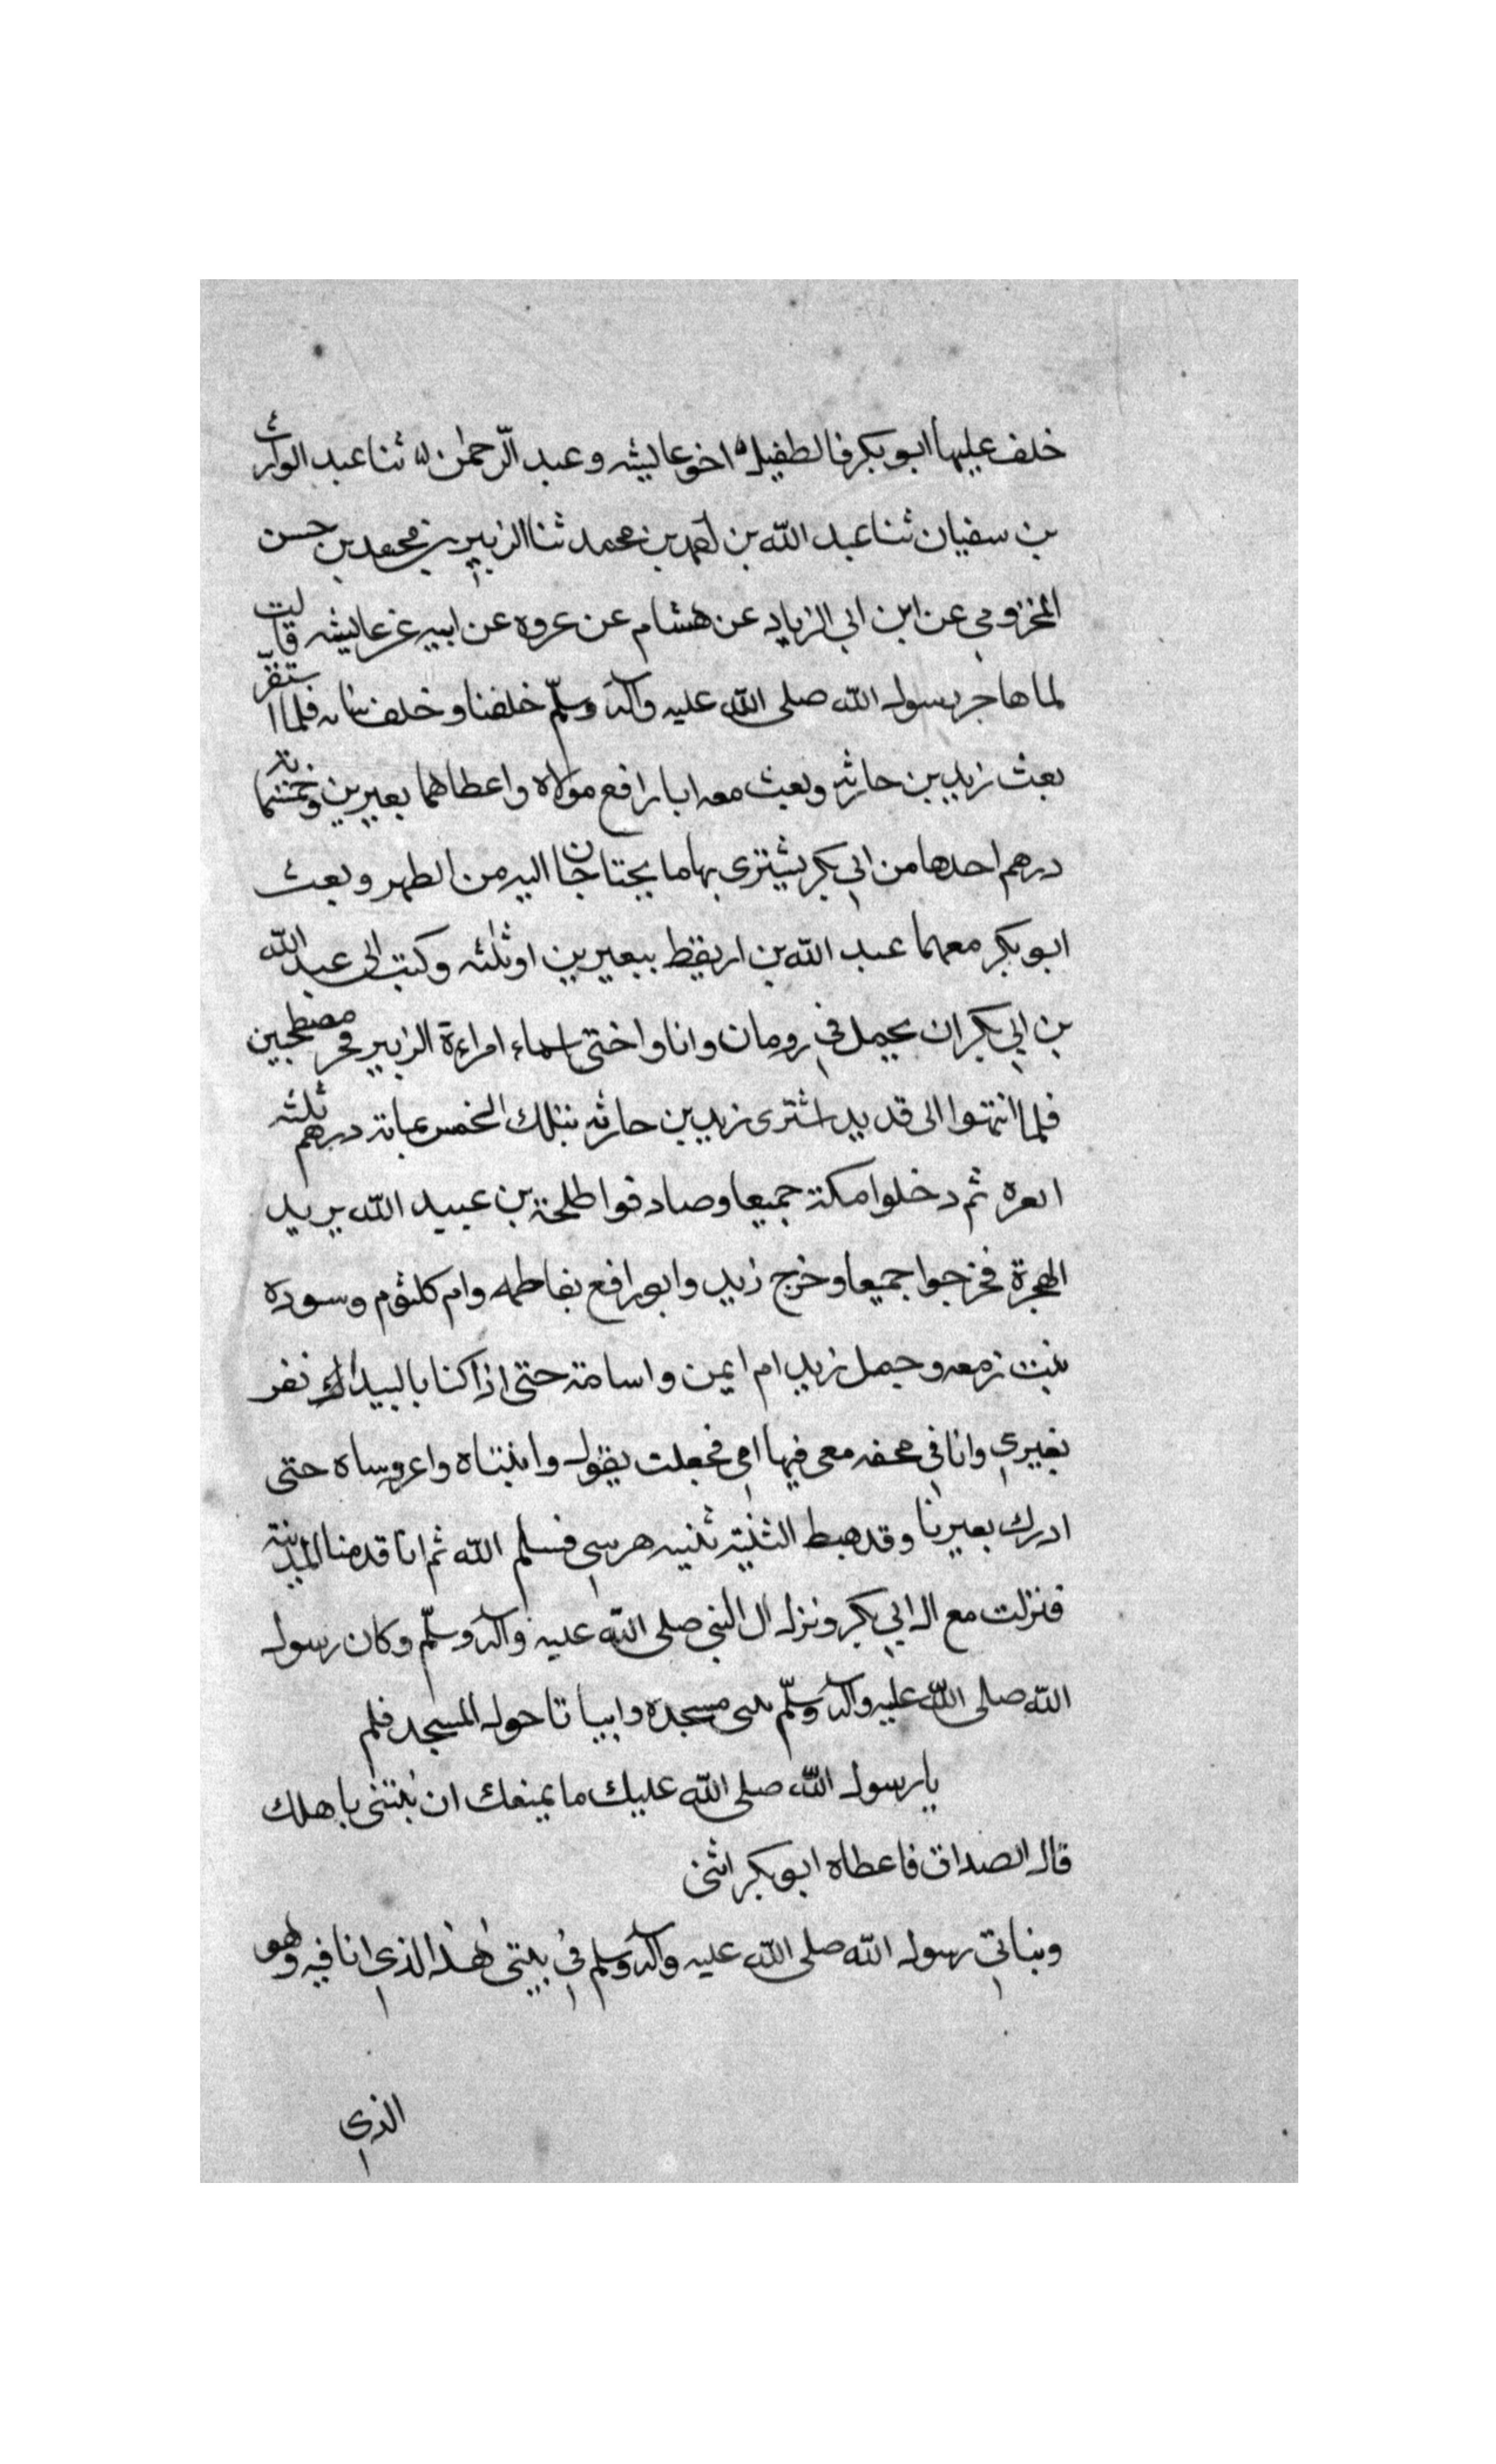 خلف عليها ابو بكر فالطفيل اخو عايشه وعبد الرحمن لا ثنا عبد الوارث
بن سفيان ثنا عبد الله بن احمد بن محمد ثنا الزبير بن محمد بن حسن
المخزومي عن ابن ابي الزياد عن هشام عن عروه عن ابيه عن عايشه قالت
لما هاجر رسول الله صلى الله عليه وآله وسلم خلفنا وخلف بناته فلما استقر
بعث زيد بن حارثه وبعث معه ابا رافع مولاه واعطاهما بعيرين وخمسمائة
درهم احدها من ابي بكر يشترى بها ما يحتاجان اليه من الظهر وبعث
ابو بكر معهما عبد الله بن اريقط ببعيرين او ثلثه وكتب الى عبد الله
بن ابي بكر ان يحمل في رومان وانا واختى اسماء امراءة الزبير فخر مصطحبين
فلما انتهوا الى قديد اشترى زيد بن حارثه بتلك الخمسمائة درهم ثلثه
ابعره ثم دخلوا مكة جميعا وصادفوا طلحة بن عبيد الله يريد
الهجرة فخرجوا جميعا وخرج زيد وابو رافع بفاطمه وام كلثوم وسوده
بنت زمعه وحمل زيد ام ايمن واسامة حتى اذا كنا بالبيداء نفر
بعيري وانا في محفه معى فيها امي فجعلت يقول وابنتاه واعروساه حتى
ادرك بعيرنا وقد هبط الثنية ثنيه هرسي فسلم الله ثم انا قدمنا المدينة
فنزلت مع ال ابي بكر ونزل ال النبي صلى الله عليه وآله وسلم وكان رسول
الله صلى الله عليه وآله وسلم بنى مسجده وابياتا حول المسجد فلم
يا رسول الله صلى الله عليك ما يمنعك ان تبتنى باهلك
قال الصداق فاعطاه ابو بكر اثنى
وبناني رسول الله صلى الله عليه وآله وسلم في بيتى هذا الذي انا فيه وهو
الذي